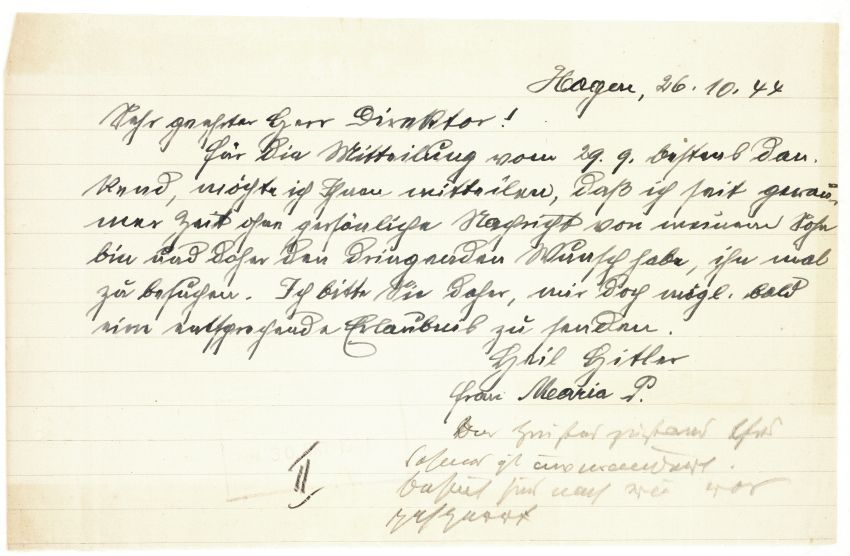 Hagen, 26.10.44
Sehr geehrter Herr Direktor!
Für die Mitteilung vom 29. 9. bestens dan-
kend, möchte ich Ihnen mitteilen, daß ich seit gerau-
mer Zeit ohne persönliche Nachricht von meinem Sohn
bin und daher den dringenden Wunsch habe, ihn mal
zu besuchen. Ich bitte Sie daher, mir doch mögl. bald
eine entsprechende Erlaubnis zu senden.
Heil Hitler
Frau Maria P.
Der Zustand Ihres
Sohnes ist unverändert.
Besuche sind nach wie vor
gesperrt
II